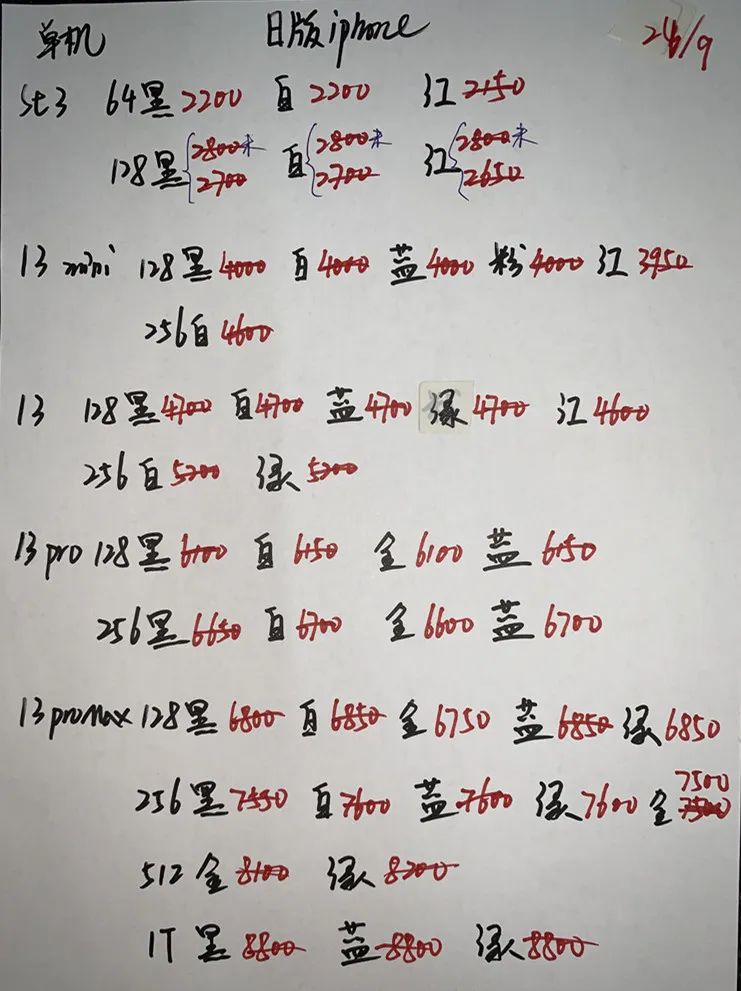 单机 日版iphone 26/9
se3 64黑2200 白2200 红2150
128黑2800未 白2800未 红2800未
2700 2700 2650
13 mini 128黑4000 白4000 蓝4000 粉4000 红3950
256白4600
13 128黑4700 白4700 蓝4700 绿4700 红4600
256白5200 绿5200
13 pro 128黑6100 白6150 金6100 蓝6150
256黑6650 白6700 金6600 蓝6700
13 promax 128黑6800 白6850 金6750 蓝6850 绿6850
7500
256黑7550 白7600 蓝7600 绿7600 金7500
512金8100 绿8200
1T黑8800 蓝8800 绿8800